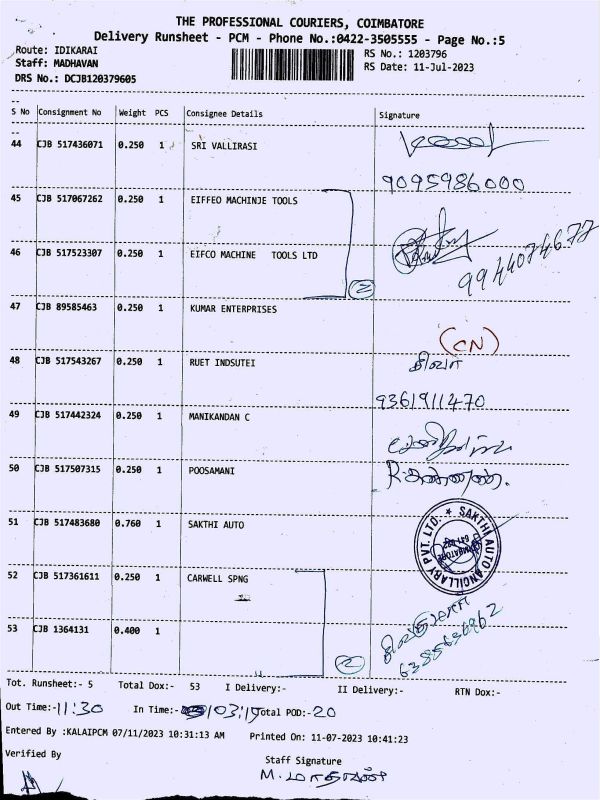 THE PROFESSIONAL COURIERS, COIMBATORE
Delivery Runsheet - PCM - Phone No.:0422-3505555 - Page No.:5
Route: IDIKARAI
RS No.: 1203796
Staff: MADHAVAN
RS Date: 11-Jul-2023
DRS No.: DCJB120379605
S No Consignment No Weight PCS Consignee Details Signature
44 CJB 517436071 0.250 1 SRI VALLIRASI
9095986000
45 CJB 517067262 0.250 1 EIFFEO MACHINJE TOOLS
46 CJB 517523307 0.250 1 EIFCO MACHINE TOOLS LTD
9944074677
2
47 CJB 89585463 0.250 1 KUMAR ENTERPRISES
(CN)
48 CJB 517543267 0.250 1 RUET INDSUTEI
சிவா
9361911470
49 CJB 517442324 0.250 1 MANIKANDAN C
50 CJB 517507315 0.250 1 POOSAMANI
51 CJB 517483680 0.760 1 SAKTHI AUTO
SAKTHI AUTO ANCILLARY PVT. LTD. *
52 CJB 517361611 0.250 1 CARWELL SPNG
53 CJB 1364131 0.400 1
2
Tot. Runsheet:- 5 Total Dox:- 53 I Delivery:- II Delivery:- RTN Dox:-
Out Time:-11:30 In Time:- Total POD:-20
Entered By :KALAIPCM 07/11/2023 10:31:13 AM Printed On: 11-07-2023 10:41:23
Verified By
Staff Signature
M. மாதவன்